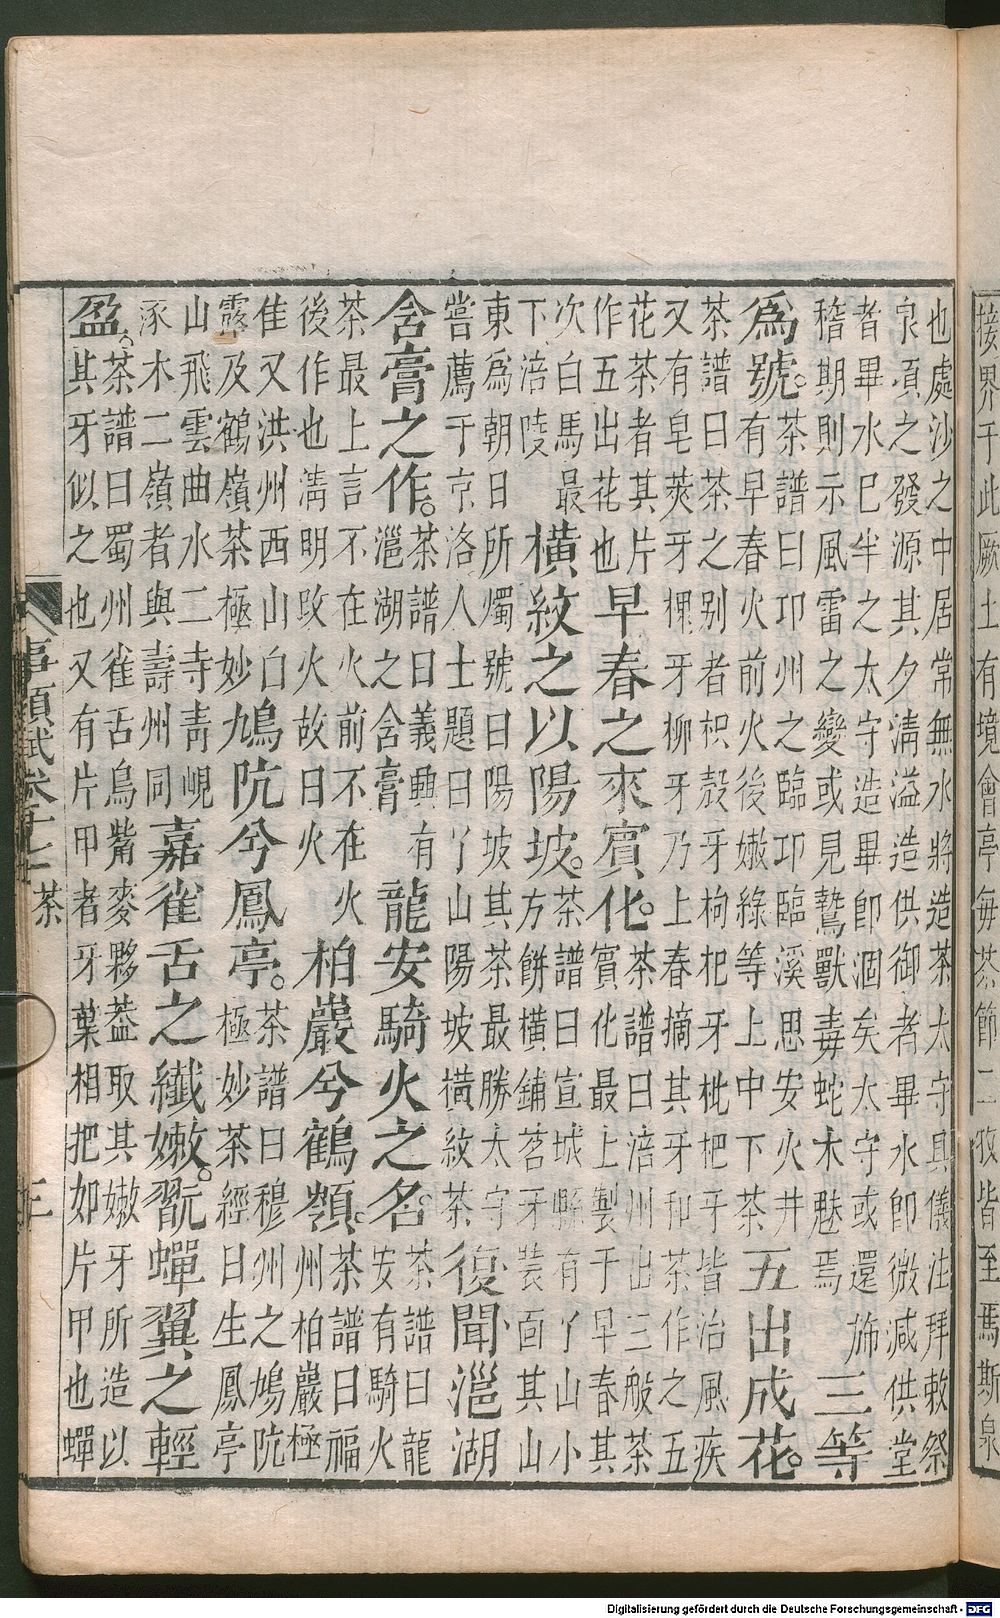 接界于此厥土有境會亭每茶節二牧皆至焉斯泉
也處沙之中居常無水將造茶太守具儀注拜敕祭
泉頃之發源其夕清溢造供御者畢水即微減供堂
者畢水已半之太守造畢即涸矣太守或還斾
稽期則示風雷之變或見鷙獸毒蛇木魅焉
三等
爲號。
茶譜曰邛州之臨邛臨溪思安火井
有早春火前火後嫩綠等上中下茶
五出成花。
茶譜曰茶之别者枳殼牙枸杞牙枇杷牙皆治風疾
又有皂莢牙槐牙柳牙乃上春摘其牙和茶作之五
花茶者其片
作五出花也
早春之來賓化。
茶譜曰涪州出三般茶
賓化最上製于早春其
次白馬最
下涪陵
橫紋之以陽坡。
茶譜曰宣城縣有丫山小
方餅橫鋪茗牙裝面其山
東爲朝日所燭號曰陽坡其茶最勝太守
嘗薦于京洛人士題曰丫山陽坡橫紋茶
復聞㴩湖
含膏之作。
茶譜曰義興有
㴩湖之含膏
龍安騎火之名。
茶譜曰龍
安有騎火
茶最上言不在火前不在火
後作也清明改火故曰火
柏巖兮鶴嶺。
茶譜曰福
州柏巖極
佳又洪州西山白
露及鶴嶺茶極妙
鳩阬兮鳳亭。
茶譜曰穆州之鳩阬
極妙茶經曰生鳳亭
山飛雲曲水二寺青峴
涿木二嶺者與壽州同
嘉雀舌之纖嫩。翫蟬翼之輕
盈。
茶譜曰蜀州雀舌鳥觜麥夥葢取其嫩牙所造以
其牙似之也又有片甲者牙葉相把如片甲也蟬
事類賦卷十七 茶 三
Digitalisierung gefördert durch die Deutsche Forschungsgemeinschaft - DFG